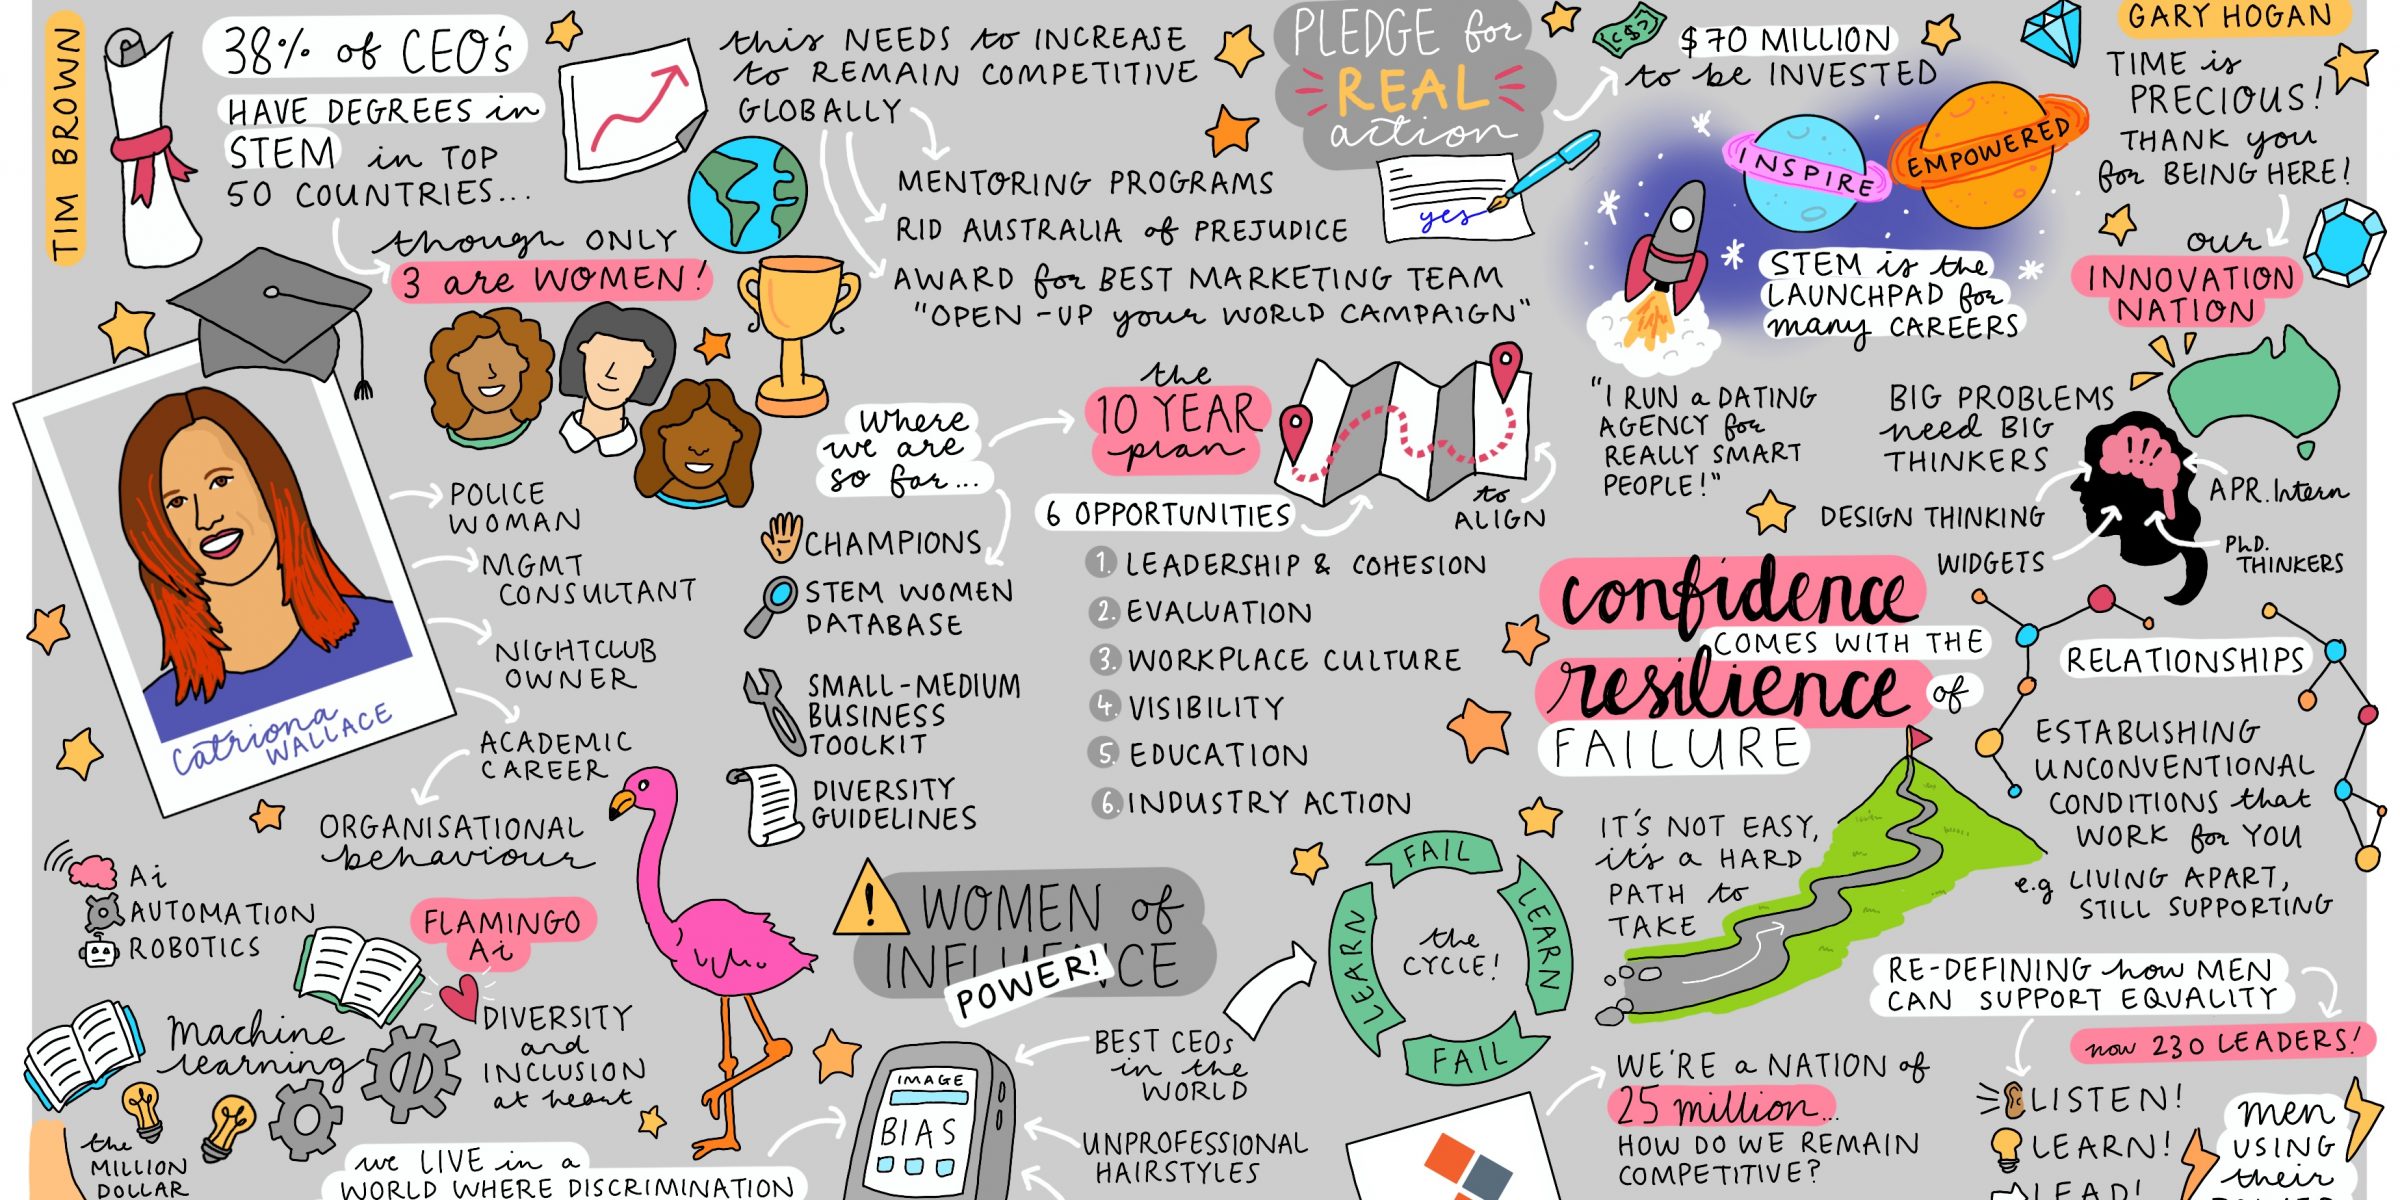 TIM BROWN
38% of CEO's
HAVE DEGREES in
STEM in TOP
50 COUNTRIES...
though ONLY
3 are WOMEN!
this NEEDS to INCREASE
to REMAIN COMPETITIVE
GLOBALLY
MENTORING PROGRAMS
RID AUSTRALIA of PREJUDICE
AWARD for BEST MARKETING TEAM
"OPEN-UP your WORLD CAMPAIGN"
PLEDGE for
REAL
action
yes
$
$70 MILLION
to be INVESTED
INSPIRE
EMPOWERED
STEM is the
LAUNCHPAD for
many CAREERS
GARY HOGAN
TIME is
PRECIOUS!
THANK you
for BEING HERE!
our
INNOVATION
NATION
Catriona
WALLACE
POLICE
WOMAN
MGMT
CONSULTANT
NIGHTCLUB
OWNER
ACADEMIC
CAREER
ORGANISATIONAL
behaviour
where
we are
so far...
CHAMPIONS
STEM WOMEN
DATABASE
SMALL-MEDIUM
BUSINESS
TOOLKIT
DIVERSITY
GUIDELINES
the
10 YEAR
plan
to
ALIGN
6 OPPORTUNITIES
1. LEADERSHIP & COHESION
2. EVALUATION
3. WORKPLACE CULTURE
4. VISIBILITY
5. EDUCATION
6. INDUSTRY ACTION
"I RUN a DATING
AGENCY for
REALLY SMART
PEOPLE!"
BIG PROBLEMS
need BIG
THINKERS
!!!
DESIGN THINKING
WIDGETS
APR.Intern
PhD.
THINKERS
confidence
COMES WITH THE
resilience of
FAILURE
IT'S NOT EASY,
it's a HARD
PATH to
TAKE
RELATIONSHIPS
ESTABLISHING
UNCONVENTIONAL
CONDITIONS that
WORK for YOU
e.g LIVING APART,
STILL SUPPORTING
Ai
AUTOMATION
ROBOTICS
FLAMINGO
Ai
Machine
learning
DIVERSITY
and
INCLUSION
at heart
the
MILLION
DOLLAR
we LIVE in a
WORLD WHERE DISCRIMINATION
!
WOMEN of
INFLUENCE
POWER!
IMAGE
BIAS
BEST CEOs
in the
WORLD
UNPROFESSIONAL
HAIRSTYLES
FAIL
LEARN
FAIL
LEARN
the
CYCLE!
WE'RE a NATION of
25 million...
HOW DO WE REMAIN
COMPETITIVE?
RE-DEFINING how MEN
CAN SUPPORT EQUALITY
now 230 LEADERS!
LISTEN!
LEARN!
LEAD!
men
USING
their